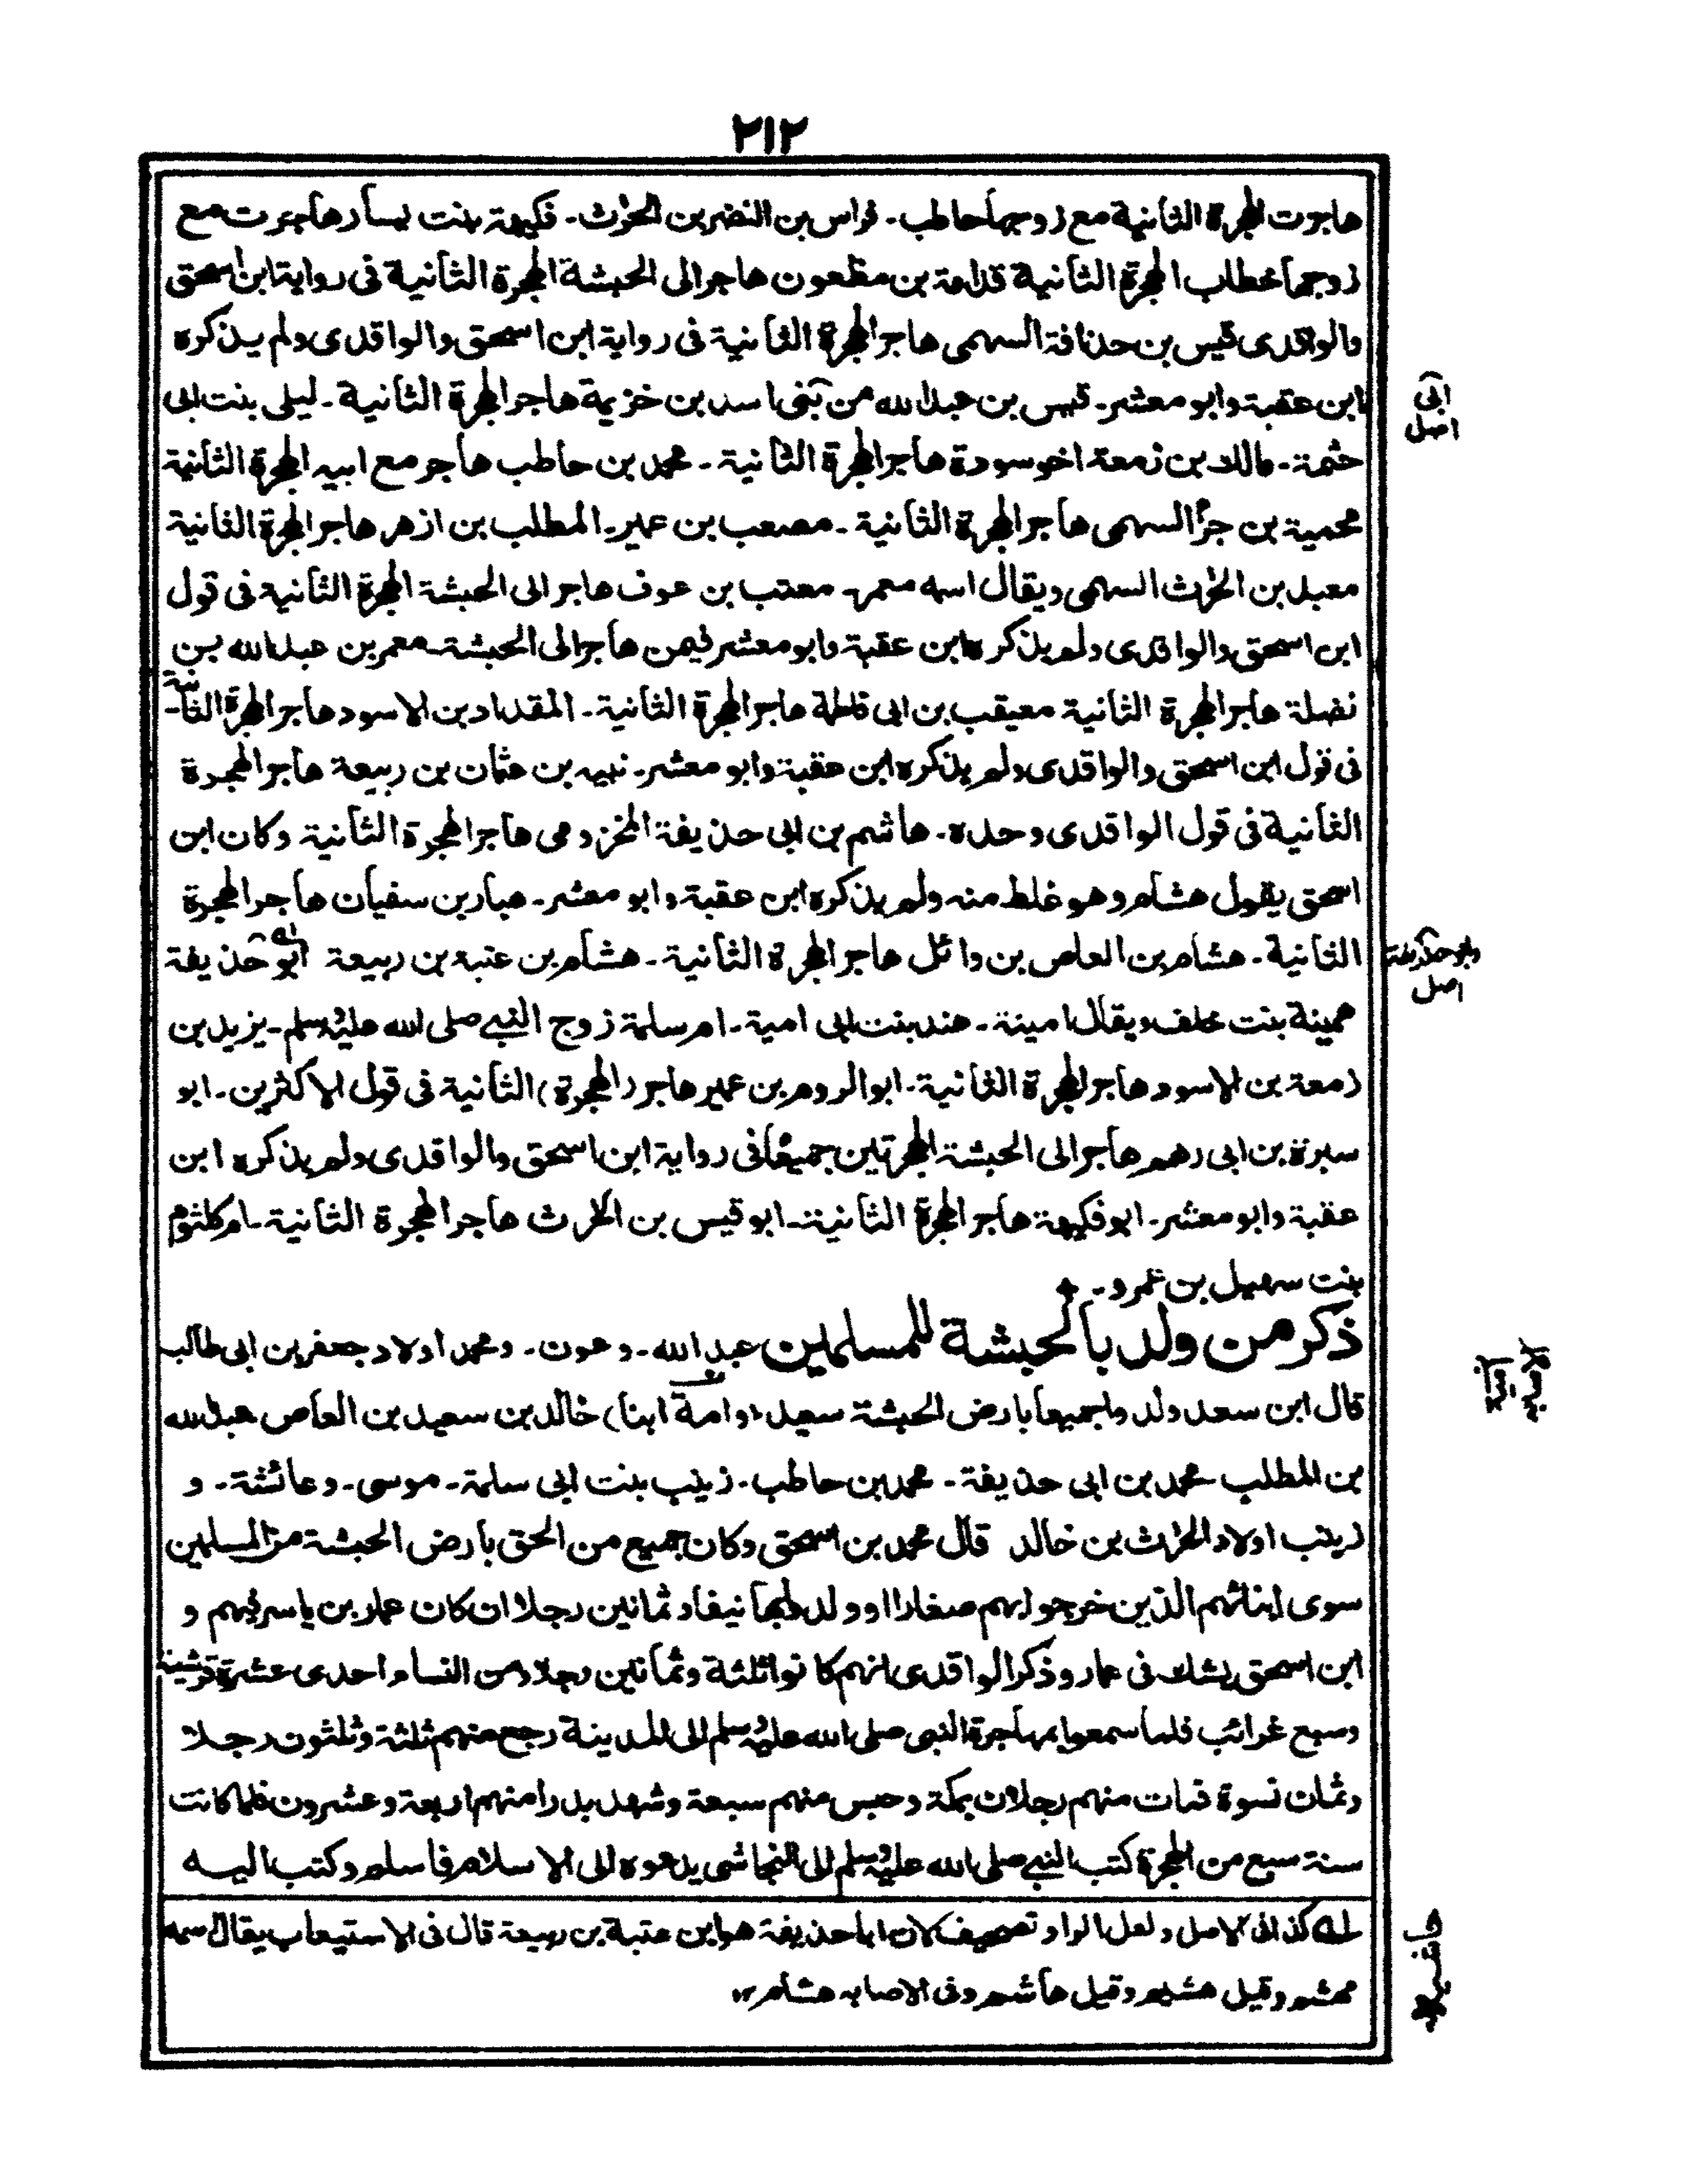 ٢١٢
هاجرت الهجرة الثانية مع زوجها حاطب۔ فراس بن النضر بن الحرث۔ فكيهة بنت يسار هاجرت مع
زوجها خطاب الهجرة الثانية قدامة بن مظعون هاجر الى الحبشة الهجرة الثانية فى رواية ابن اسحق
والواقدى قيس بن حذافة السهمى هاجر الهجرة الثانية فى رواية ابن اسحق والواقدى ولم يذكره
ابن عقبة وابو معشر۔ قيس بن عبد الله من بنى اسد بن خزيمة هاجر الهجرة الثانية۔ ليلى بنت ابى
ابى
اصل
حثمة۔ مالك بن زمعة اخو سودة هاجر الهجرة الثانية۔ محمد بن حاطب هاجر مع ابيه الهجرة الثانية
محمية بن جزأ السهمى هاجر الهجرة الثانية۔ مصعب بن عمير۔ المطلب بن ازهر هاجر الهجرة الثانية
معبد بن الحرث السهمى ويقال اسمه معمر۔ معتب بن عوف هاجر الى الحبشة الهجرة الثانية فى قول
ابن اسحق والواقدى ولم يذكره ابن عقبة وابو معشر فيمن هاجر الى الحبشة۔ معمر بن عبد الله بن
نضلة هاجر الهجرة الثانية معيقب بن ابى فاطمة هاجر الهجرة الثانية۔ المقداد بن الاسود هاجر الهجرة الثانية
فى قول ابن اسحق والواقدى ولم يذكره ابن عقبة وابو معشر۔ نبيه بن عثمان بن ربيعة هاجر الهجرة
الثانية فى قول الواقدى وحده۔ هاشم بن ابى حذيفة المخزومى هاجر الهجرة الثانية وكان ابن
اسحق يقول هشام وهو غلط منه ولم يذكره ابن عقبة وابو معشر۔ هبار بن سفيان هاجر الهجرة
الثانية۔ هشام بن العاص بن وائل هاجر الهجرة الثانية۔ هشام بن عتبة بن ربيعة ابو حذيفة
وابو حذيفة
اصل
همينة بنت خلف ويقال امينة۔ هند بنت ابى امية۔ ام سلمة زوج النبى صلى الله عليه وسلم۔ يزيد بن
زمعة بن الاسود هاجر الهجرة الثانية۔ ابو الروم بن عمير هاجر (الهجرة) الثانية فى قول الاكثرين۔ ابو
سبرة بن ابى رهم هاجر الى الحبشة الهجرتين جميعًا فى رواية ابن اسحق والواقدى ولم يذكره ابن
عقبة وابو معشر۔ ابو فكيهة هاجر الهجرة الثانية۔ ابو قيس بن الحرث هاجر الهجرة الثانية۔ ام كلثوم
بنت سهيل بن عمرو۔
ذكر من ولد بالحبشة للمسلمين عبد الله۔ وعون۔ ومحمد اولاد جعفر بن ابى طالب
قال ابن سعد ولدوا جميعا بارض الحبشة سعيد (وامة ابنا) خالد بن سعيد بن العاص عبد الله
بن المطلب محمد بن ابى حذيفة۔ محمد بن حاطب۔ زينب بنت ابى سلمة۔ موسى۔ وعائشة۔ و
زينب اولاد الحرث بن خالد قال محمد بن اسحق وكان جميع من الحق بارض الحبشة من المسلمين
سوى ابنائهم الذين خرجوا بهم صغارا او ولد وا بها نيفا وثمانين رجلا ان كان عمار بن ياسر فيهم و
ابن اسحق يشك فى عمار وذكر الواقدى انهم كانوا ثلثة وثمانين رجلا ومن النساء احدى عشرة قرشية
وسبع غرائب فلما سمعوا بمهاجرة النبى صلى الله عليه وسلم الى المدينة رجع منهم ثلثة وثلثون رجلا
وثمان نسوة فمات منهم رجلان بمكة وحبس منهم سبعة وشهد بدرا منهم اربعة وعشرون فلما كانت
سنة سبع من الهجرة كتب النبى صلى الله عليه وسلم الى النجاشى يدعوه الى الاسلام فاسلم وكتب اليه
له كذا فى الاصل ولعل الواو تصحيف لان ابا حذيفة هو ابن عتبة بن ربيعة قال فى الاستيعاب يقال اسمه
مهشم وقيل هشيم وقيل هاشم وفى الاصابه هشام ١٢